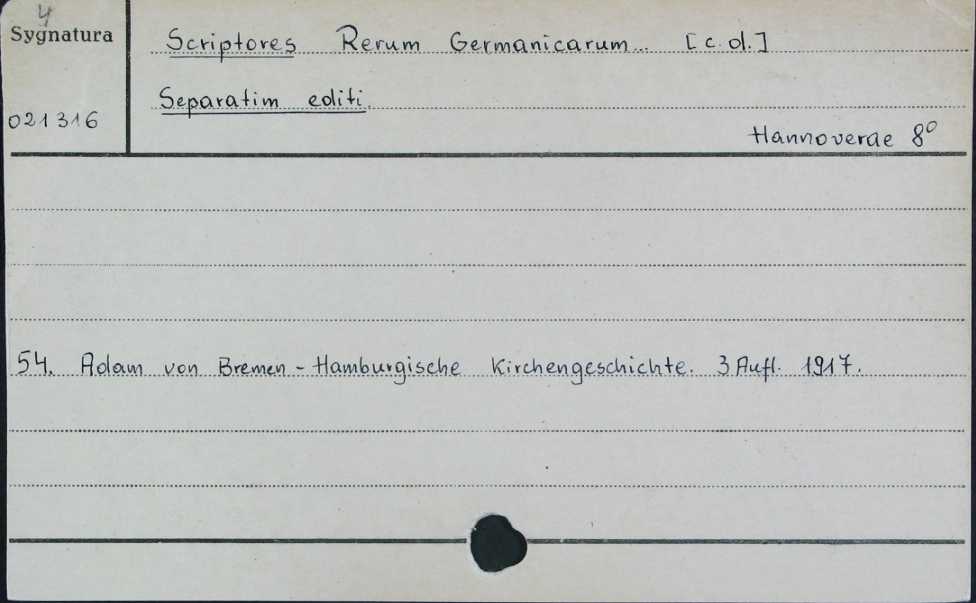 4
Sygnatura
Scriptores Rerum Germanicarum... [c.d.]
Separatim editi.
021316
Hannoverae 8º
54. Adam von Bremen - Hamburgische Kirchengeschichte. 3 Aufl. 1917.